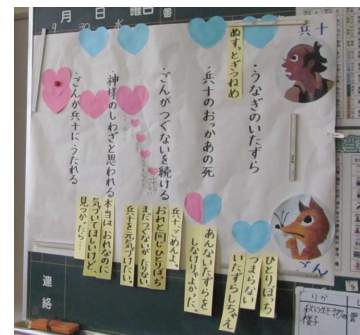 月 日 曜日
兵十
ぬすっとぎつねめ
・うなぎのいたずら
・兵十のおっかあの死
・ごんがつぐないを続ける
・神様のしわざと思われる
・ごんが兵十にうたれる
ひとりぼっち
つまらない
いたずらしちゃえ
あんないたずらを
しなけりゃよかった。
兵十、ごめんよ。
おれと同じひとりぼっち
まだつぐないがたりない。
兵十を元気づけたい。
本当は おれなのに
気づいてほしいけど、
見つかったら…
ごん
連絡
りか